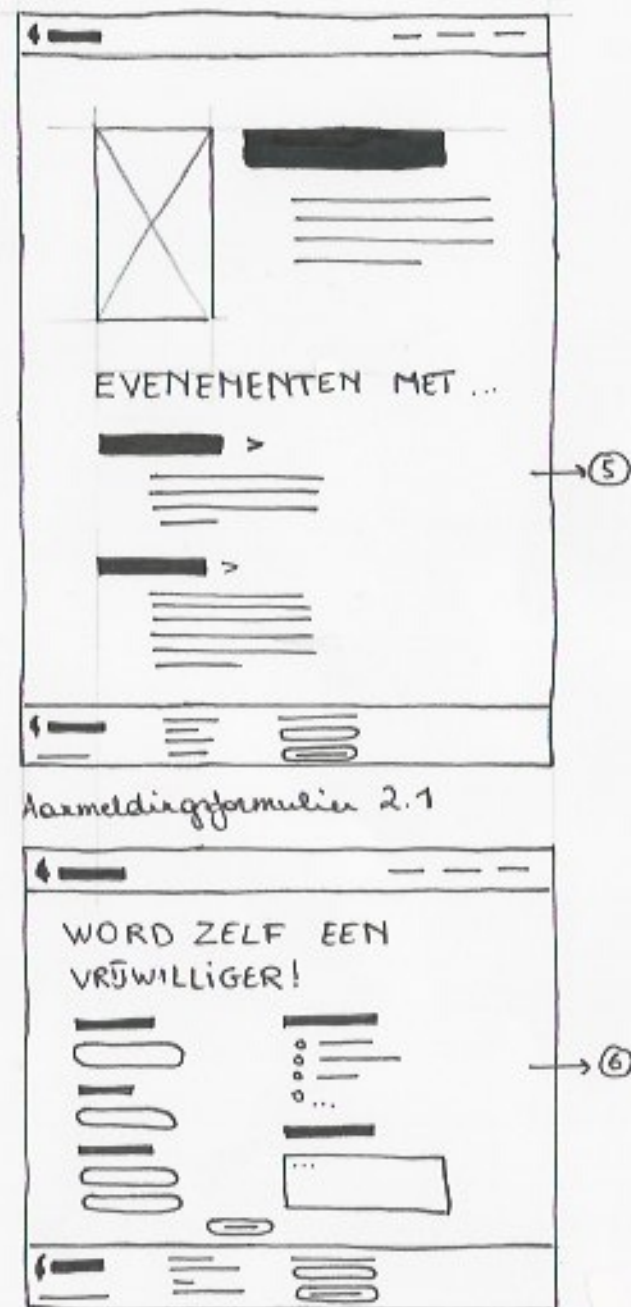 EVENEMENTEN MET ...
>
⑤
>
Aanmeldingsformulier 2.1
WORD ZELF EEN
VRIJWILLIGER!
⑥
...
...